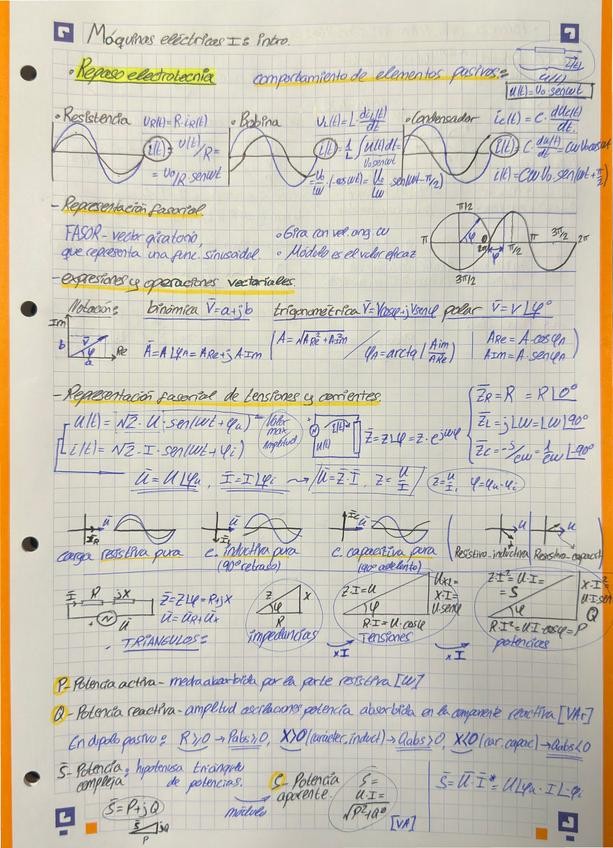 Máquinas eléctricas I: intro.
• Repaso electrotecnia comportamiento de elementos pasivos:
u(t) = U₀ senωt
• Resistencia u_R(t) = R·i_R(t)
i(t) = u(t)/R =
= U₀/R senωt
• Bobina u_L(t) = L di_L(t)/dt
i(t) = 1/L ∫u(t)dt =
U₀ senωt
= U₀/Lω·(-cosωt) = U₀/Lω sen(ωt-π/2)
• Condensador i_c(t) = C · du_c(t)/dt
i(t) = C · du(t)/dt = CωU₀cosωt
i(t) = CωU₀ sen(ωt+π/2)
- Representación fasorial
FASOR - vector giratorio,
que representa una func. sinusoidal
• Gira con vel. ang ω
• Módulo es el valor eficaz
π/2 π 3π/2 π/2 π 3π/2 2π φ
- expresiones y operaciones vectoriales.
Notación: binómica V̄ = a+jb trigonométrica V̄ = Vcosφ+jVsenφ polar V̄ = V∟φ°
Im b V̄ φ a Re
Ā = A∟φ_A = A_Re+j A_Im
A = √A_Re²+A_Im² / φ_A = arctg |A_Im/A_Re|
A_Re = A·cosφ_A
A_Im = A·senφ_A
- Representación fasorial de tensiones y corrientes.
u(t) = √2·U·sen(ωt+φ_u)
i(t) = √2·I·sen(ωt+φ_i)
Valor max Amplitud
u(t) Z̄ = Z∟φ = Z·e^jφ
Z̄_R = R = R∟0°
Z̄_L = jLω = Lω∟90°
Z̄_C = -j/cω = 1/cω∟-90°
Ū = U∟φ_u, Ī = I∟φ_i → Ū = Z̄·Ī, Z̄ = Ū/Ī Z = U/I, φ = φ_u-φ_i
carga resistiva pura
c. inductiva pura
(90° retraso)
c. capacitiva pura
(90° adelanto)
Resistivo-inductiva
Resistivo-capacit
Ī R jX Ū
Z̄ = Z∟φ = R+jX
Ū = Ū_R+Ū_X
• TRIANGULOS:
Z X φ R
impedancias
×I
Z·I = U
U_XL =
X·I =
U·senφ
φ
R·I = U·cosφ
Tensiones
×I
Z·I² = U·I =
= S
X·I² =
U·I sen
Q
φ
R·I² = U·I·cosφ = P
potencias
P- Potencia activa - media absorbida por la parte resistiva [W]
Q- Potencia reactiva - amplitud oscilaciones potencia absorbida en la componente reactiva [VAr]
En dipolo pasivo: R≥0 → Pabs≥0, X>0 (carácter, induct) → Qabs>0, X<0 (car. capac) → Qabs<0
S̄- Potencia compleja: hipotenusa triángulo de potencias.
S̄ = P+jQ
S̄ jQ P
módulo
S- Potencia aparente.
S =
U·I =
√P²+Q²
[VA]
S̄ = Ū·Ī* = U∟φ_u · I∟-φ_i